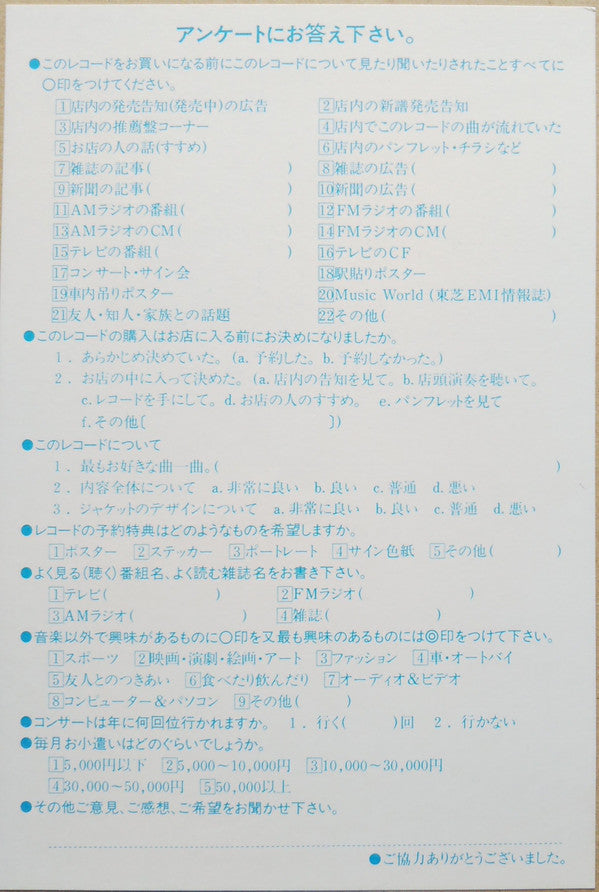 アンケートにお答え下さい。
●このレコードをお買いになる前にこのレコードについて見たり聞いたりされたことすべてに
○印をつけてください。
1店内の発売告知(発売中)の広告 2店内の新譜発売告知
3店内の推薦盤コーナー 4店内でこのレコードの曲が流れていた
5お店の人の話(すすめ) 6店内のパンフレット・チラシなど
7雑誌の記事( ) 8雑誌の広告( )
9新聞の記事( ) 10新聞の広告( )
11AMラジオの番組( ) 12FMラジオの番組( )
13AMラジオのCM( ) 14FMラジオのCM( )
15テレビの番組( ) 16テレビのCF
17コンサート・サイン会 18駅貼りポスター
19車内吊りポスター 20Music World (東芝EMI情報誌)
21友人・知人・家族との話題 22その他( )
●このレコードの購入はお店に入る前にお決めになりましたか。
1. あらかじめ決めていた。(a. 予約した。b. 予約しなかった。)
2. お店の中に入って決めた。(a. 店内の告知を見て。b. 店頭演奏を聴いて。
c. レコードを手にして。d. お店の人のすすめ。 e. パンフレットを見て
f. その他〔 〕)
●このレコードについて
1. 最もお好きな曲一曲。( )
2. 内容全体について a. 非常に良い b. 良い c. 普通 d. 悪い
3. ジャケットのデザインについて a. 非常に良い b. 良い c. 普通 d. 悪い
●レコードの予約特典はどのようなものを希望しますか。
1ポスター 2ステッカー 3ポートレート 4サイン色紙 5その他( )
●よく見る(聴く)番組名、よく読む雑誌名をお書き下さい。
1テレビ( ) 2FMラジオ( )
3AMラジオ( ) 4雑誌( )
●音楽以外で興味があるものに○印を又最も興味のあるものには◎印をつけて下さい。
1スポーツ 2映画・演劇・絵画・アート 3ファッション 4車・オートバイ
5友人とのつきあい 6食べたり飲んだり 7オーディオ&ビデオ
8コンピューター&パソコン 9その他( )
●コンサートは年に何回位行かれますか。 1. 行く( )回 2. 行かない
●毎月お小遣いはどのぐらいでしょうか。
15,000円以下 25,000〜10,000円 310,000〜30,000円
430,000〜50,000円 550,000以上
●その他ご意見、ご感想、ご希望をお聞かせ下さい。
●ご協力ありがとうございました。